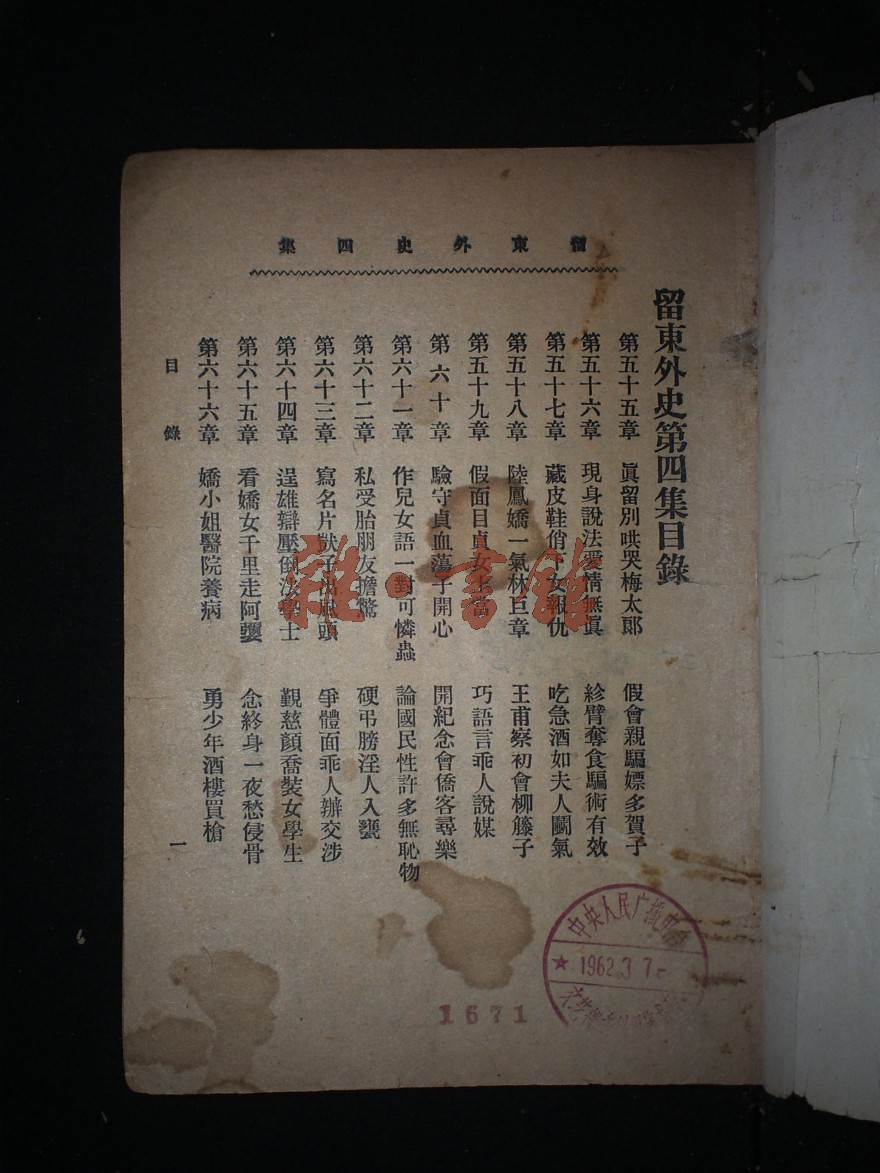 留東外史四集
留東外史第四集目錄
第五十五章 眞留別哄哭梅太郎 假會親騙嫖多賀子
第五十六章 現身說法愛情無眞 紾臂奪食騙術有效
第五十七章 藏皮鞋俏下女報仇 吃急酒如夫人鬭氣
第五十八章 陸鳳嬌一氣林巨章 王甫察初會柳藤子
第五十九章 假面目貞女上當 巧語言乖人說媒
第六十章 驗守貞血蕩子開心 開紀念會僑客尋樂
第六十一章 作兒女語一對可憐蟲 論國民性許多無恥物
第六十二章 私受胎朋友擔驚 硬弔膀淫人入甕
第六十三章 寫名片獃子出風頭 爭體面乖人辦交涉
第六十四章 逞雄辯壓倒法學士 覲慈顏喬裝女學生
第六十五章 看嬌女千里走阿蠻 念終身一夜愁侵骨
第六十六章 嬌小姐醫院養病 勇少年酒樓買槍
目錄
一
雜·書館
中央人民广播电
1962.3.7
1671